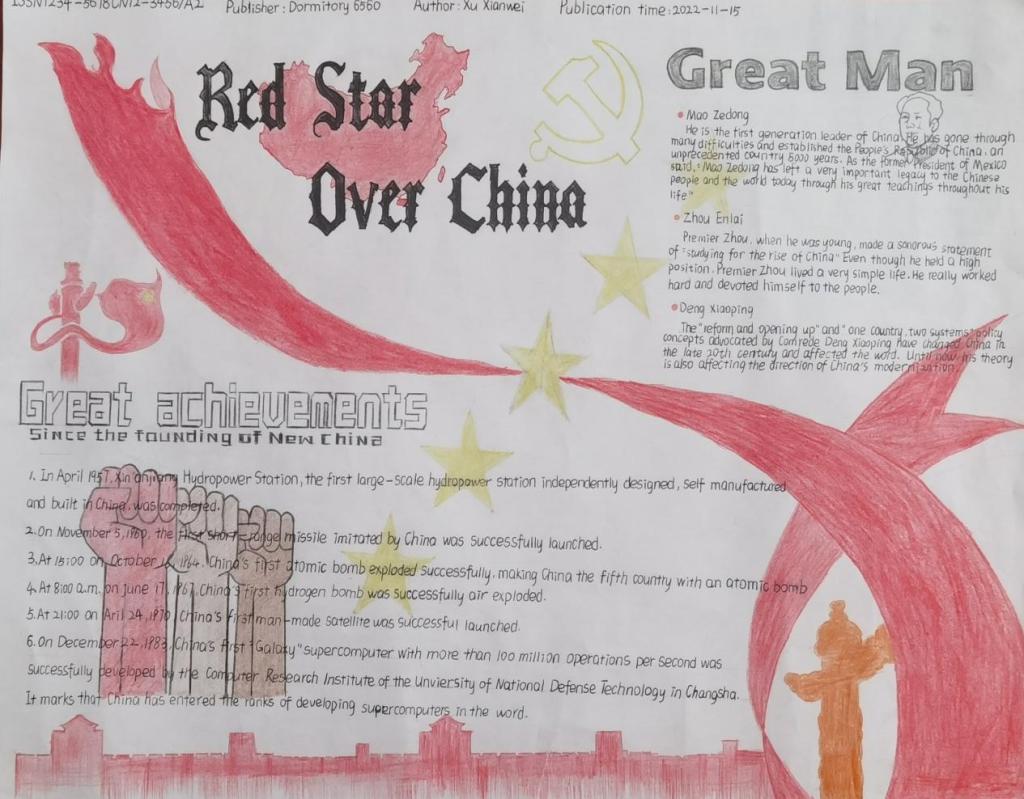 ISSN1234-5678CN12-3456/A2 Publisher: Dormitory 6560 Author: Xu Xianwei Publication time: 2022-11-15
Red Star
Over China
Great Man
Mao Zedong
He is the first generation leader of China. He has gone through
many difficulties and established the People's Republic of China, an
unprecedented country 5000 years. As the former President of Mexico
said, "Mao Zedong has left a very important legacy to the Chinese
people and the world today through his great teachings throughout his
life"
Zhou Enlai
Premier Zhou, when he was young, made a sonorous statement
of "studying for the rise of China" Even though he held a high
position, Premier Zhou lived a very simple life. He really worked
hard and devoted himself to the people.
Deng Xiaoping
The "reform and opening up" and "one country, two systems" policy
concepts advocated by Comrede Deng Xiaoping have changed China in
the late 20th century and affected the word. Until now, his theory
is also affecting the direction of China's modernization.
Great achievements
Since the founding of New China
1. In April 1957, Xin'anjiang Hydropower Station, the first large-scale hydropower station independently designed, self manufactured
and built in China, was completed.
2. On November 5, 1960, the first short-range missile imitated by China was successfully launched.
3. At 15:00 on October 16, 1964, China's first atomic bomb exploded successfully, making China the fifth country with an atomic bomb
4. At 8:00 a.m. on june 17, 1967, China's first hydrogen bomb was successfully air exploded.
5. At 21:00 on Aril 24, 1970 China's first man-made satellite was successful launched.
6. On December 22, 1983, China's first "Galaxy" supercomputer with more than 100 million operations per second was
successfully developed by the Computer Research Institute of the Unviersity of National Defense Technology in Changsha.
It marks that China has entered the ranks of developing supercomputers in the word.